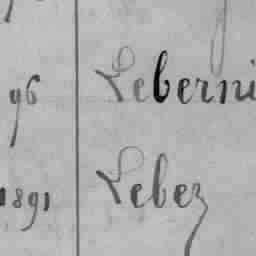 96 Leberni
1891 Lebez